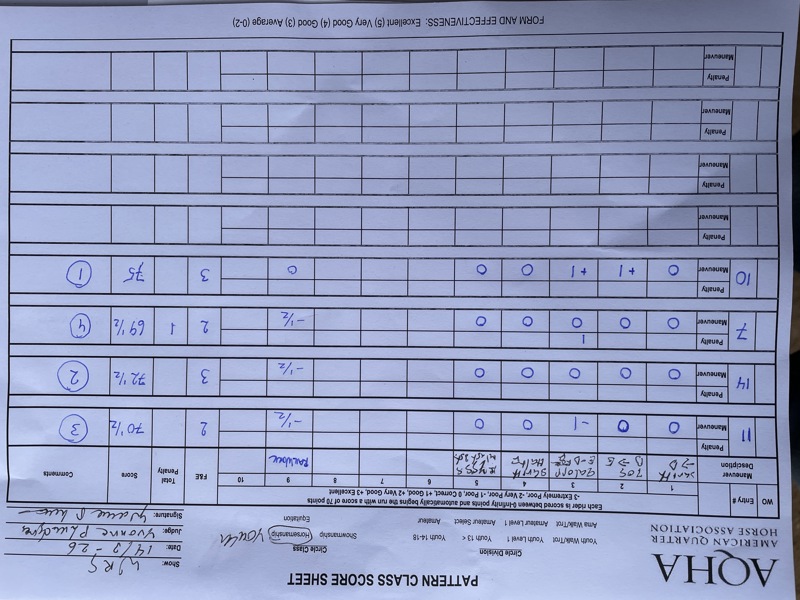 AQHA
AMERICAN QUARTER
HORSE ASSOCIATION
PATTERN CLASS SCORE SHEET
Circle Division
Youth Walk/Trot Youth Level 1 Youth 13 < Youth 14-18
Amat Walk/Trot Amateur Level 1 Amateur Select Amateur
Circle Class
Showmanship Horsemanship Youth
Equitation
Show: WRS
Date: 14/3-26
Judge: Yvonne
Signature: Yvonne
Each rider is scored between 0-infinity points and automatically begins the run with a score of 70 points
-3 Extremely Poor, -2 Very Poor, -1 Poor, 0 Correct, +1 Good, +2 Very Good, +3 Excellent
WO Entry # Maneuver Description 1 2 3 4 5 6 7 8 9 10 F&E Total Penalty Score Comments
Skritt → B
B → E
Galopp
Skritt Halt
Rygg
11 Penalty
Maneuver 0 0 -1 0 0 -1/2 2 70 1/2 3
14 Penalty
Maneuver 0 0 0 0 0 -1/2 3 72 1/2 2
7 Penalty 1
Maneuver 0 0 0 0 0 -1/2 2 1 69 1/2 4
10 Penalty
Maneuver 0 +1 +1 0 0 0 3 75 1
Penalty
Maneuver
Penalty
Maneuver
Penalty
Maneuver
Penalty
Maneuver
FORM AND EFFECTIVENESS: Excellent (5) Very Good (4) Good (3) Average (0-2)